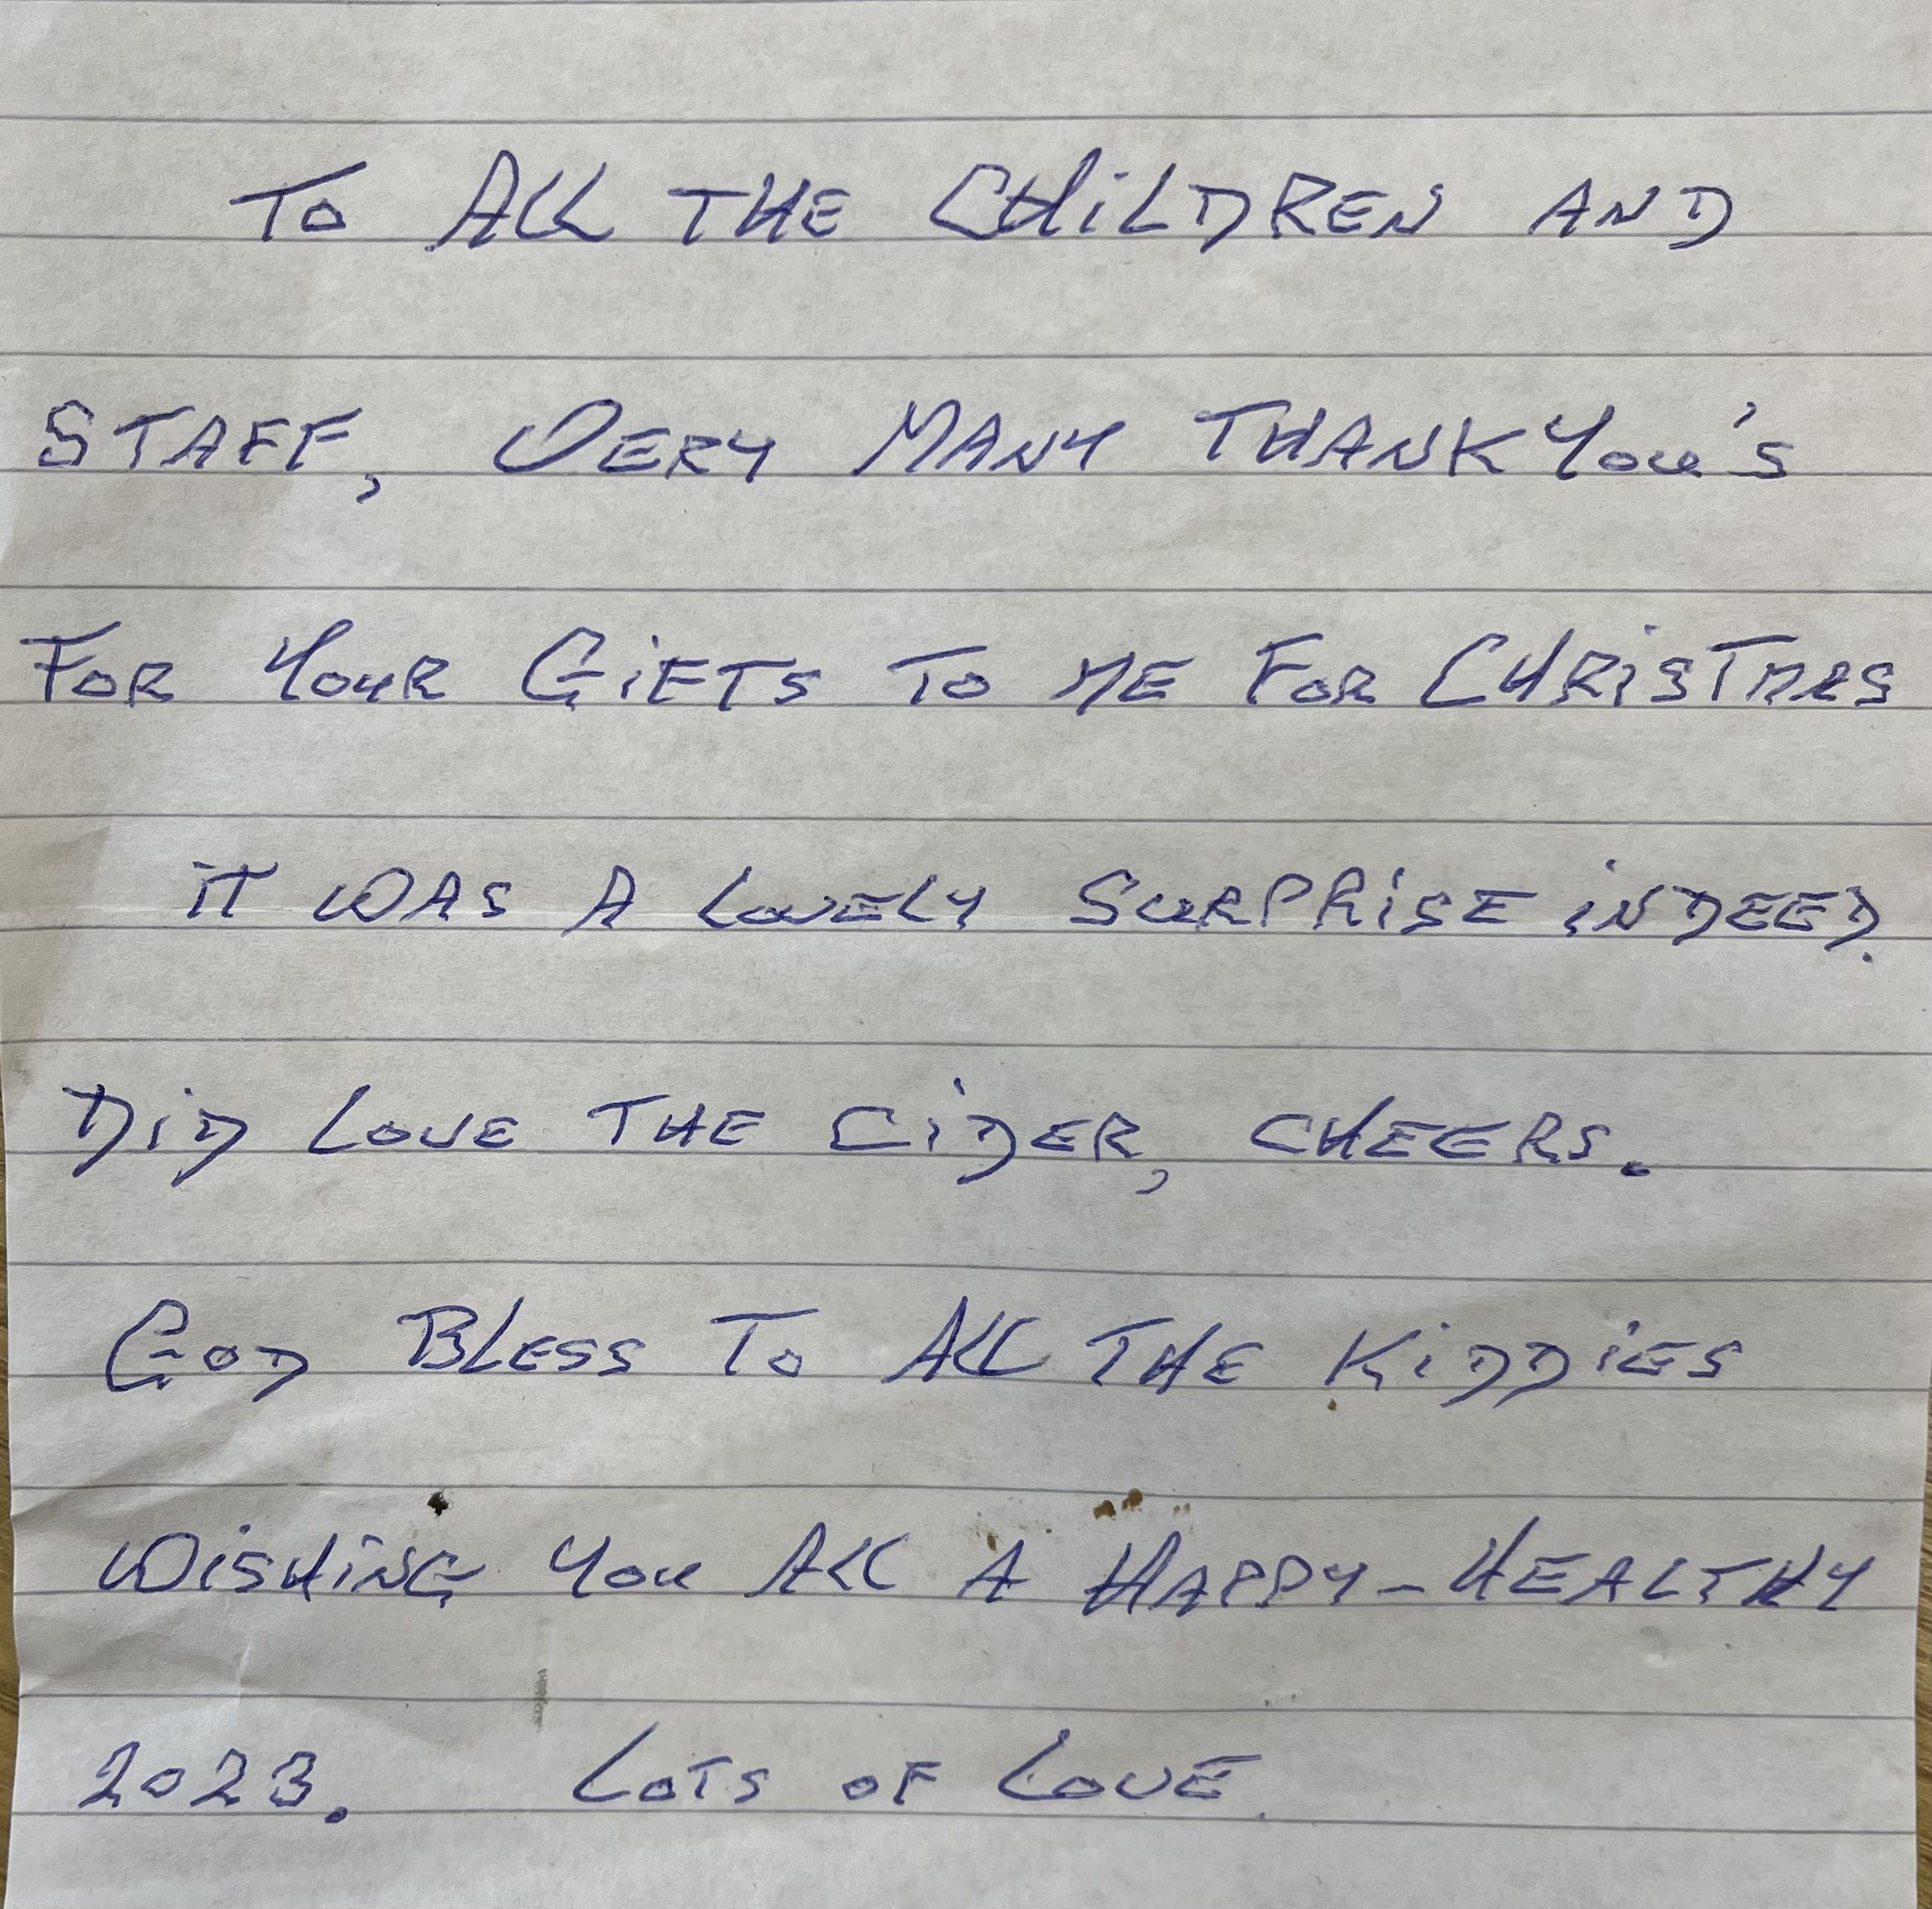 TO ALL THE CHiLDREN AND
STAFF, VERY MANY THANK YOU'S
FOR YOUR GiFTS TO ME FOR CHRiSTMAS
iT WAS A LOVELY SURPRiSE iNDEED.
DiD LOVE THE CiDER, CHEERS.
GOD BLESS TO ALL THE KiDDiES
WiSHiNG YOU ALL A HAPPY-HEALTHY
2023. LOTS OF LOVE.